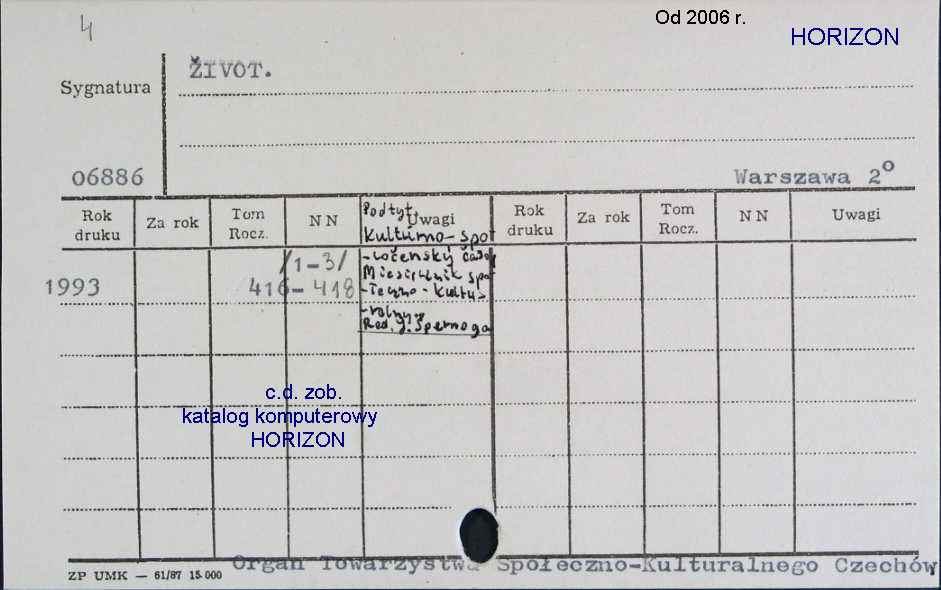 4
Od 2006 r.
HORIZON
ŽIVOT.
Sygnatura
06886
Warszawa 2°
Rok druku Za rok Tom Rocz. NN Uwagi Rok druku Za rok Tom Rocz. NN Uwagi
Podtyt.
Kultúrno-spo
-ločenský časo
/1-3/
Miesięcznik spo
1993 416-418 -łeczno-kultu-
-ralny.
Red. J. Špernoga
c.d. zob.
katalog komputerowy
HORIZON
Organ Towarzystwa Społeczno-Kulturalnego Czechów
ZP UMK — 61/87 15.000